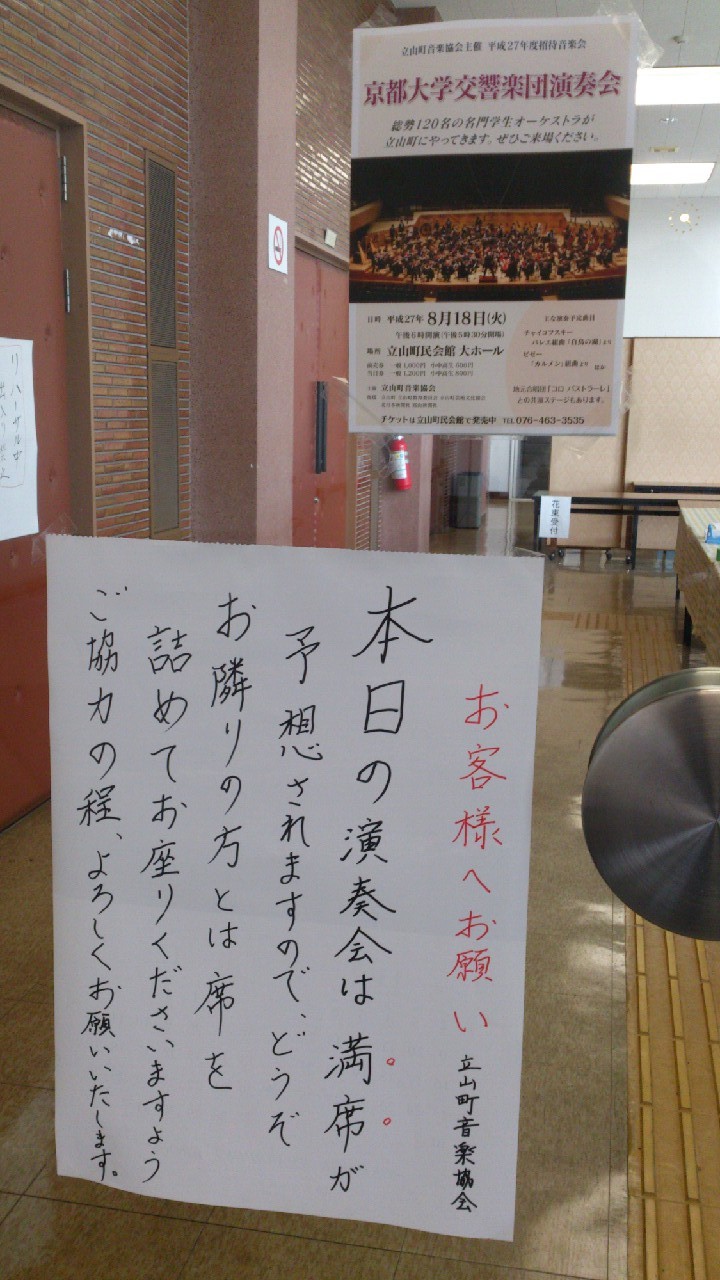 立山町音楽協会主催 平成27年度招待音楽会
京都大学交響楽団演奏会
総勢120名の名門学生オーケストラが
立山町にやってきます。ぜひご来場ください。
日時 平成27年 8月18日(火)
午後6時開演(午後5時30分開場)
場所 立山町民会館 大ホール
主催 立山町音楽協会
チケットは立山町民会館で発売中 TEL 076-463-3535
主な演奏予定曲目
チャイコフスキー
バレエ組曲「白鳥の湖」より
ビゼー
「カルメン」組曲より ほか
との共演ステージもあります。
花束受付
リハーサル中
お客様へお願い 立山町音楽協会
本日の演奏会は満席が
予想されますので、どうぞ
お隣りの方とは席を
詰めてお座りくださいますよう
ご協力の程、よろしくお願いいたします。